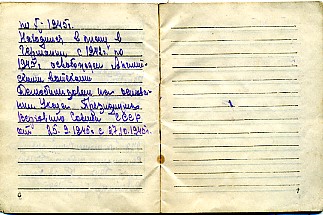 по 5. 1945г.
Находился в плену в
Германии с 1942г. по
1945г. освобожден Англий-
скими войсками
Демобилизован на основа-
нии Указа Президиума
Верховного Совета СССР
от 25.9.1945г. с 27.10.1945г.
6
7